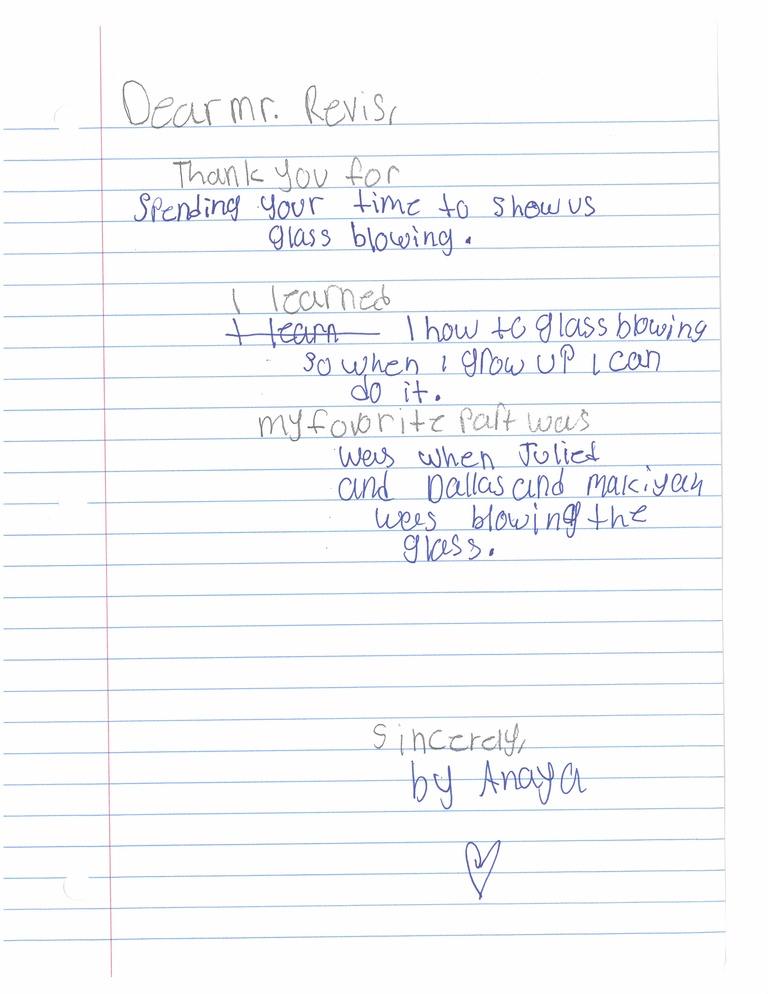 Dear mr. Revis,
Thank you for
Spending your time to show us
glass blowing.
I learned
I learn I how to glass blowing
so when i grow up i can
do it.
my favorite part was
was when Julied
and Dallas and makiyah
wees blowing the
glass.
Sincerely,
by Anaya